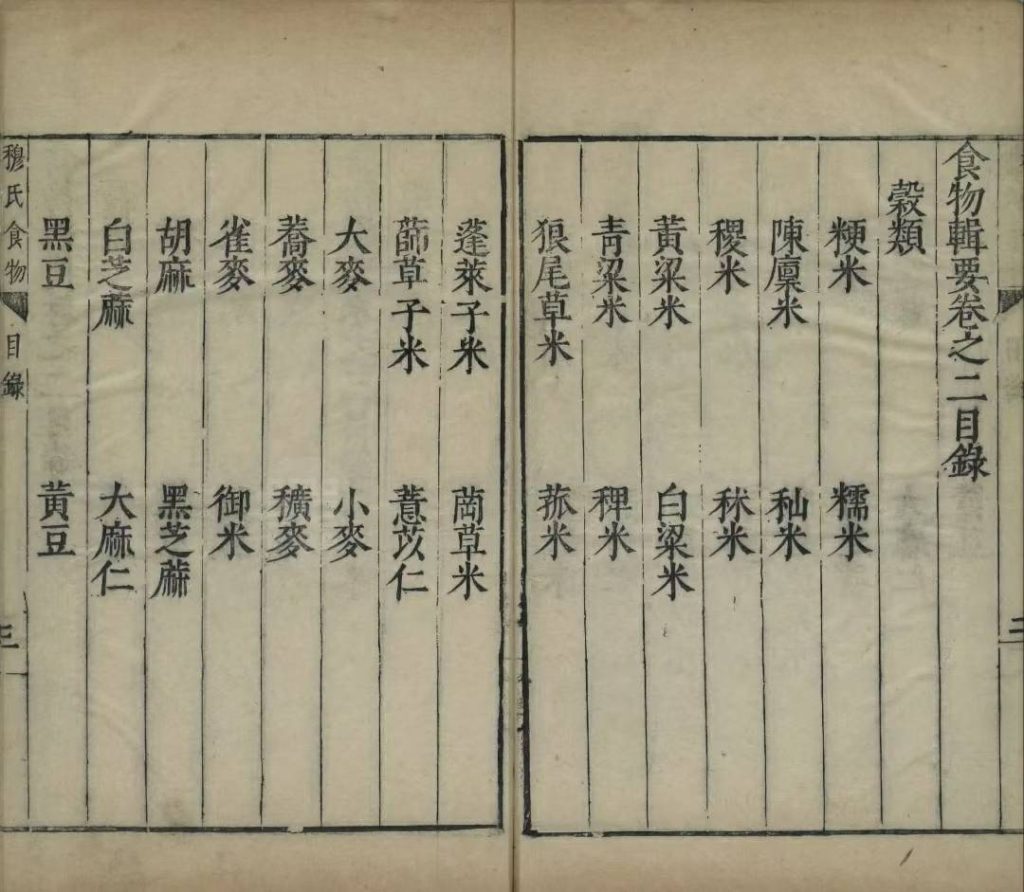 食物輯要卷之二目錄
穀類
粳米 糯米
陳廩米 秈米
稷米 秫米
黃粱米 白粱米
青粱米 稗米
狼尾草米 菰米
蓬萊子米 䒽草米
蒒草子米 薏苡仁
大麥 小麥
蕎麥 穬麥
雀麥 御米
胡麻 黑芝蔴
白芝蔴 大麻仁
黑豆 黃豆
穆氏食物 目錄 三